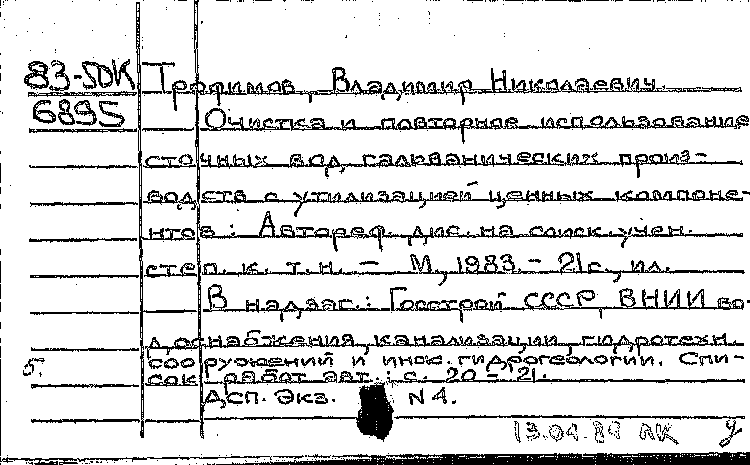 83-5ДК Трофимов, Владимир Николаевич.
6895 Очистка и повторное использование
сточных вод гальванических произ-
водств с утилизацией ценных компоне-
нтов : Автореф. дис. на соиск. учен.
степ. к. т. н. - М, 1983. - 21 с., ил.
В надзаг.: Госстрой СССР, ВНИИ во-
доснабжения, канализации, гидротехн.
сооружений и инж. гидрогеологии. Спи-
сок работ авт.: с. 20-21.
Б.
ДСП. Экз. N 4.
13.04.89 ЛК